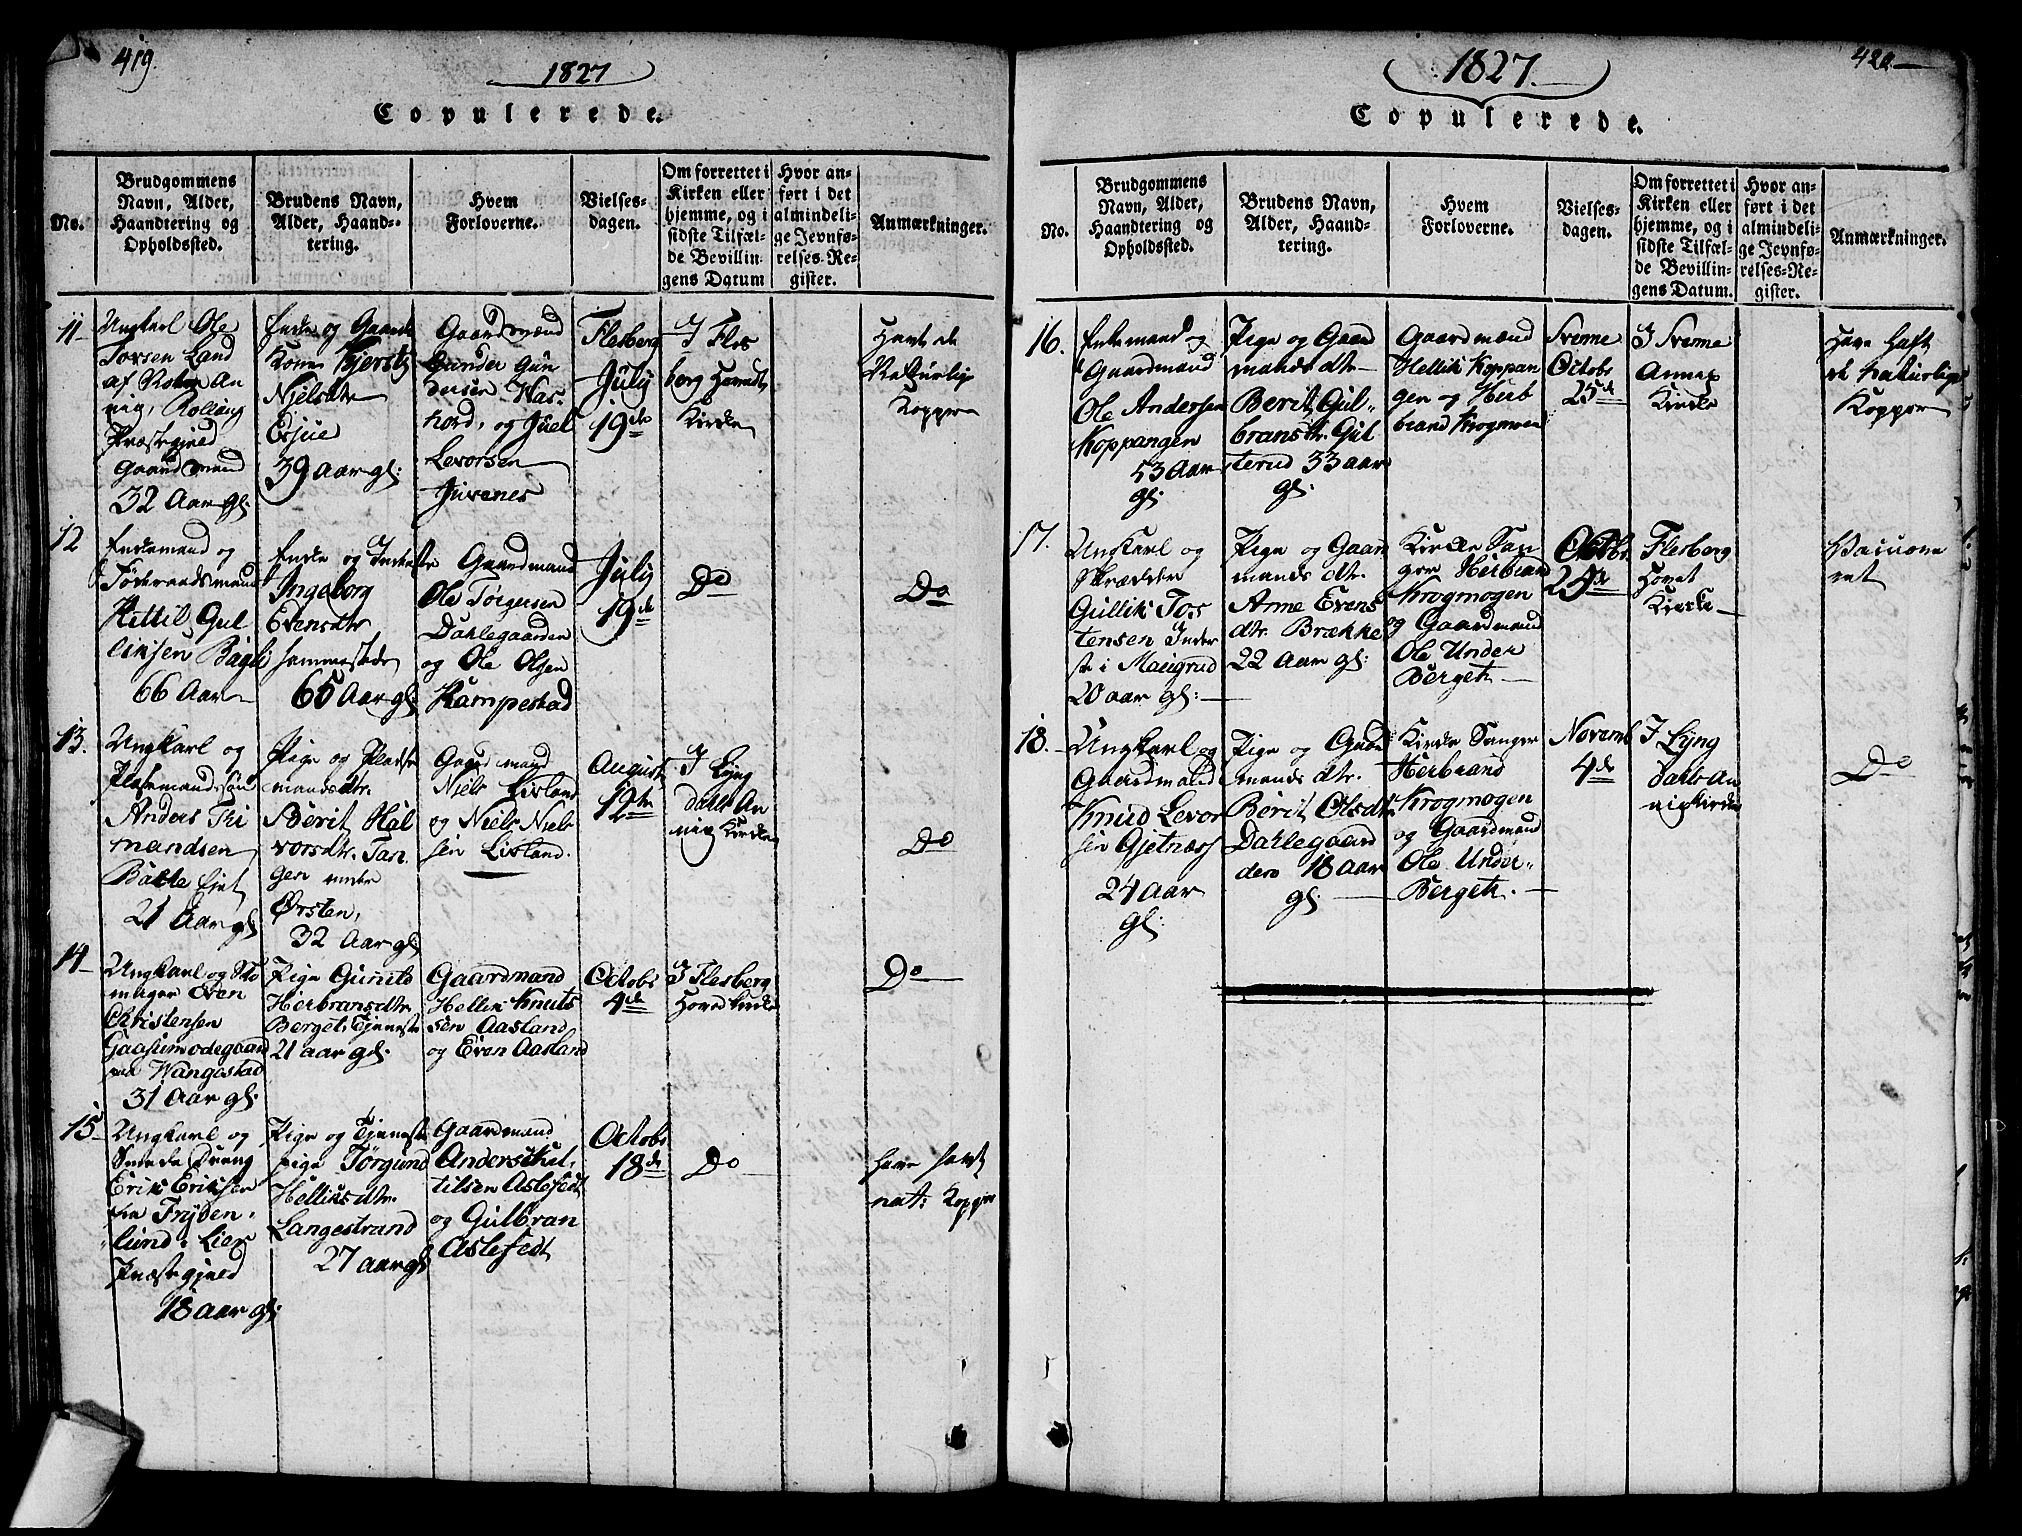 419.
1827
Copulerede.
No.
Brudgommens
Navn, Alder,
Haandtering og
Opholdssted.
Brudens Navn,
Alder, Haand-
tering.
Hvem
Forloverne.
Vielses-
dagen.
Om forrettet i
Kirken eller
hjemme, og i
sidste Tilfæl-
de Bevillin-
gens Datum
Hvor an-
ført i det
almindeli-
ge Jevnfø-
relses-Re-
gister.
Anmærkninger.
11
Ungkarl Ole
Torsen Land
Præstegjeld
Gaardmand
32 Aar gl:
Enke og Gaard
Kone Kjersti
Nielsdtr
39 Aar gl:
Gaardmænd
Gunder Gun
dersen Has-
nord, og Juel
Levorsen
Juvenes
Flesberg
July
19de
I Fles
berg Hoved
Kirke
Havde de
Naturlige
Kopper
12
Enkemand og
Føderaadsmand
Kittil Gul
liksen Bagli
66 Aar
Enke og
Ingeborg
Evensdtr
sammesteds
65 Aar gl
Gaardmænd
Ole Torgersen
Dahlegaarden
og Ole Olsen
Kampestad
July
19de
Do
Do
13.
Ungkarl og
Pladsemand søn
Anders Tri
mandsen
21 Aar gl
Pige og Pladse
mandsdtr.
Berit Hal
vorsdtr. Tan
gen under
Ørsten,
32 Aar gl;
Gaardmænd
Niels Lisland
og Niels Niels
sen Lisland.
August
12te
I Lyng
dahls An
nex Kirke
Do
14
Ungkarl og Sko
mager Even
Christensen
Gaasumodegaard
paa Wangestad
31 Aar gl.
Pige Gunild
Herbransdtr
Berget, Tjeneste
21 aar gl.
Gaardmænd
Hellik Knuts
sen Aasland
og Even Aasland
Octobr
4de
I Flesberg
Hoved Kirke
Do
15
Ungkarl og
Smede Dreng
Erik Eriksen
fra Fryden-
lund i Lier
Præstegjeld
18 aar gl;
Pige og Tjeneste
pige Jørgund
Helliksdtr.
Langestrand
27 aar gl
Gaardmænd
Anders Kit-
tilsen Aslefedt
og Gulbran
Aslefedt
Octobr
18de
Do
have havt
nat: Kopper
1827.
420
Copulerede.
No.
Brudgommens
Navn, Alder,
Haandtering og
Opholdssted.
Brudens Navn,
Alder, Haand-
tering.
Hvem
Forloverne.
Vielses-
dagen.
Om forrettet i
Kirken eller
hjemme, og i
sidste Tilfæl-
de Bevillin-
gens Datum.
Hvor an-
ført i det
almindeli-
ge Jevnfø-
relses-Re-
gister.
Anmærkninger.
16.
Enkemand og
Gaardmand
Ole Andersen
Koppangen
53 Aar
gl:
Pige og Gaard
mands dtr.
Berit Gul-
bransdtr. Gul
sterud 33 aar
gl.
Gaardmænd
Hellik Koppan
gen og Herb
brand Krogmoen
Svene
Octobr
25de
I Svene
Annex
Kirke
Have Haft
de Naturlige
Kopper
17.
Ungkarl og
Skrædder
Gullik Tos
tensen Inder
st i Maugrud
20 aar gl:
Pige og Gaard
mands dtr.
Anne Evens
dtr. Brække
22 Aar gl:
Kirke San
ger Herbrand
Krogmogen
og Gaardmand
Ole Under
Berget.
Octobr
25de
Flesberg
Hovet
Kirke
Vaccine
ret
18.
Ungkarl og
Gaardmand
Knud Levor
sen Gjetnæss
24 Aar
gl:
Pige og Gaard
mands dtr.
Berit Olsdtr
Dahlegaard
den 18 aar
gl.
Kirke Sanger
Herbrand
Krogmogen
og Gaardmand
Ole Under-
Berget.
Novemb
4de
I Lyng
dahls An
nex Kirke
Do